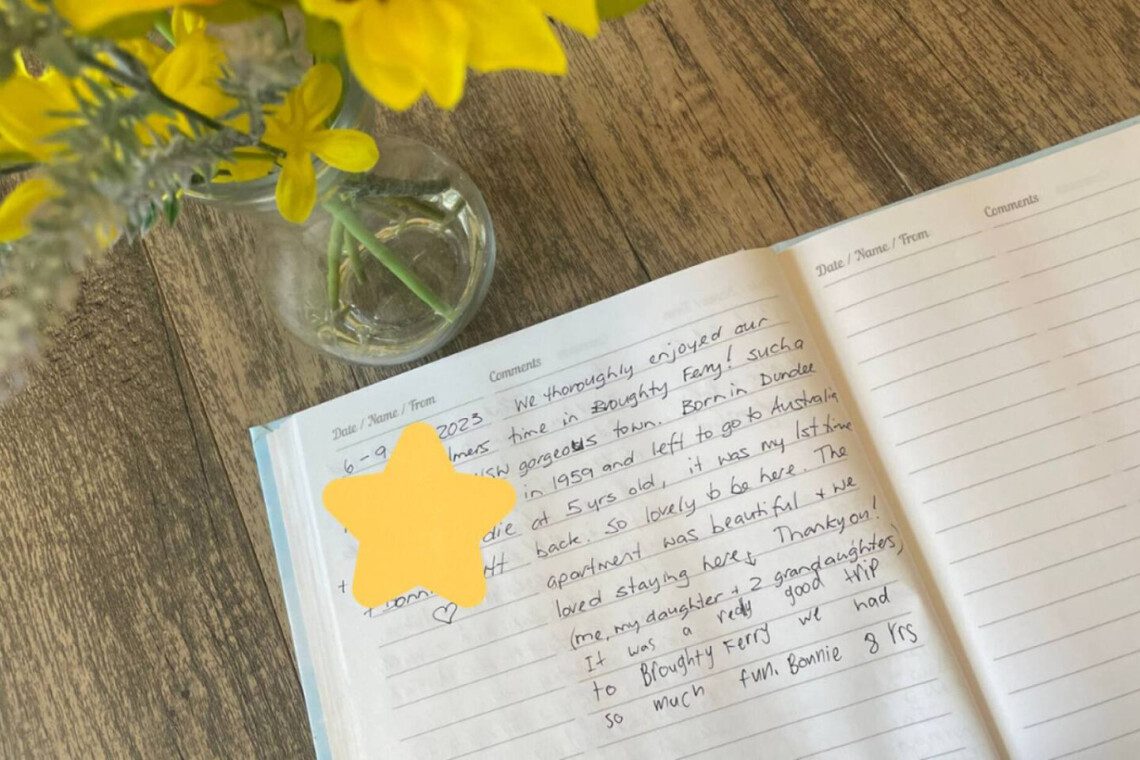 Date / Name / From Comments
6 - 9 2023 We thoroughly enjoyed our
lmers time in Broughty Ferry! such a
NSW gorgeous town. Born in Dundee
in 1959 and left to go to Australia
die at 5 yrs old, it was my 1st time
back. So lovely to be here. The
apartment was beautiful + we
+ Bonn loved staying here. Thankyou!
(me, my daughter + 2 grandaughters)
It was a really good trip
to Broughty Ferry we had
so much fun. Bonnie 8 Yrs
Date / Name / From Comments